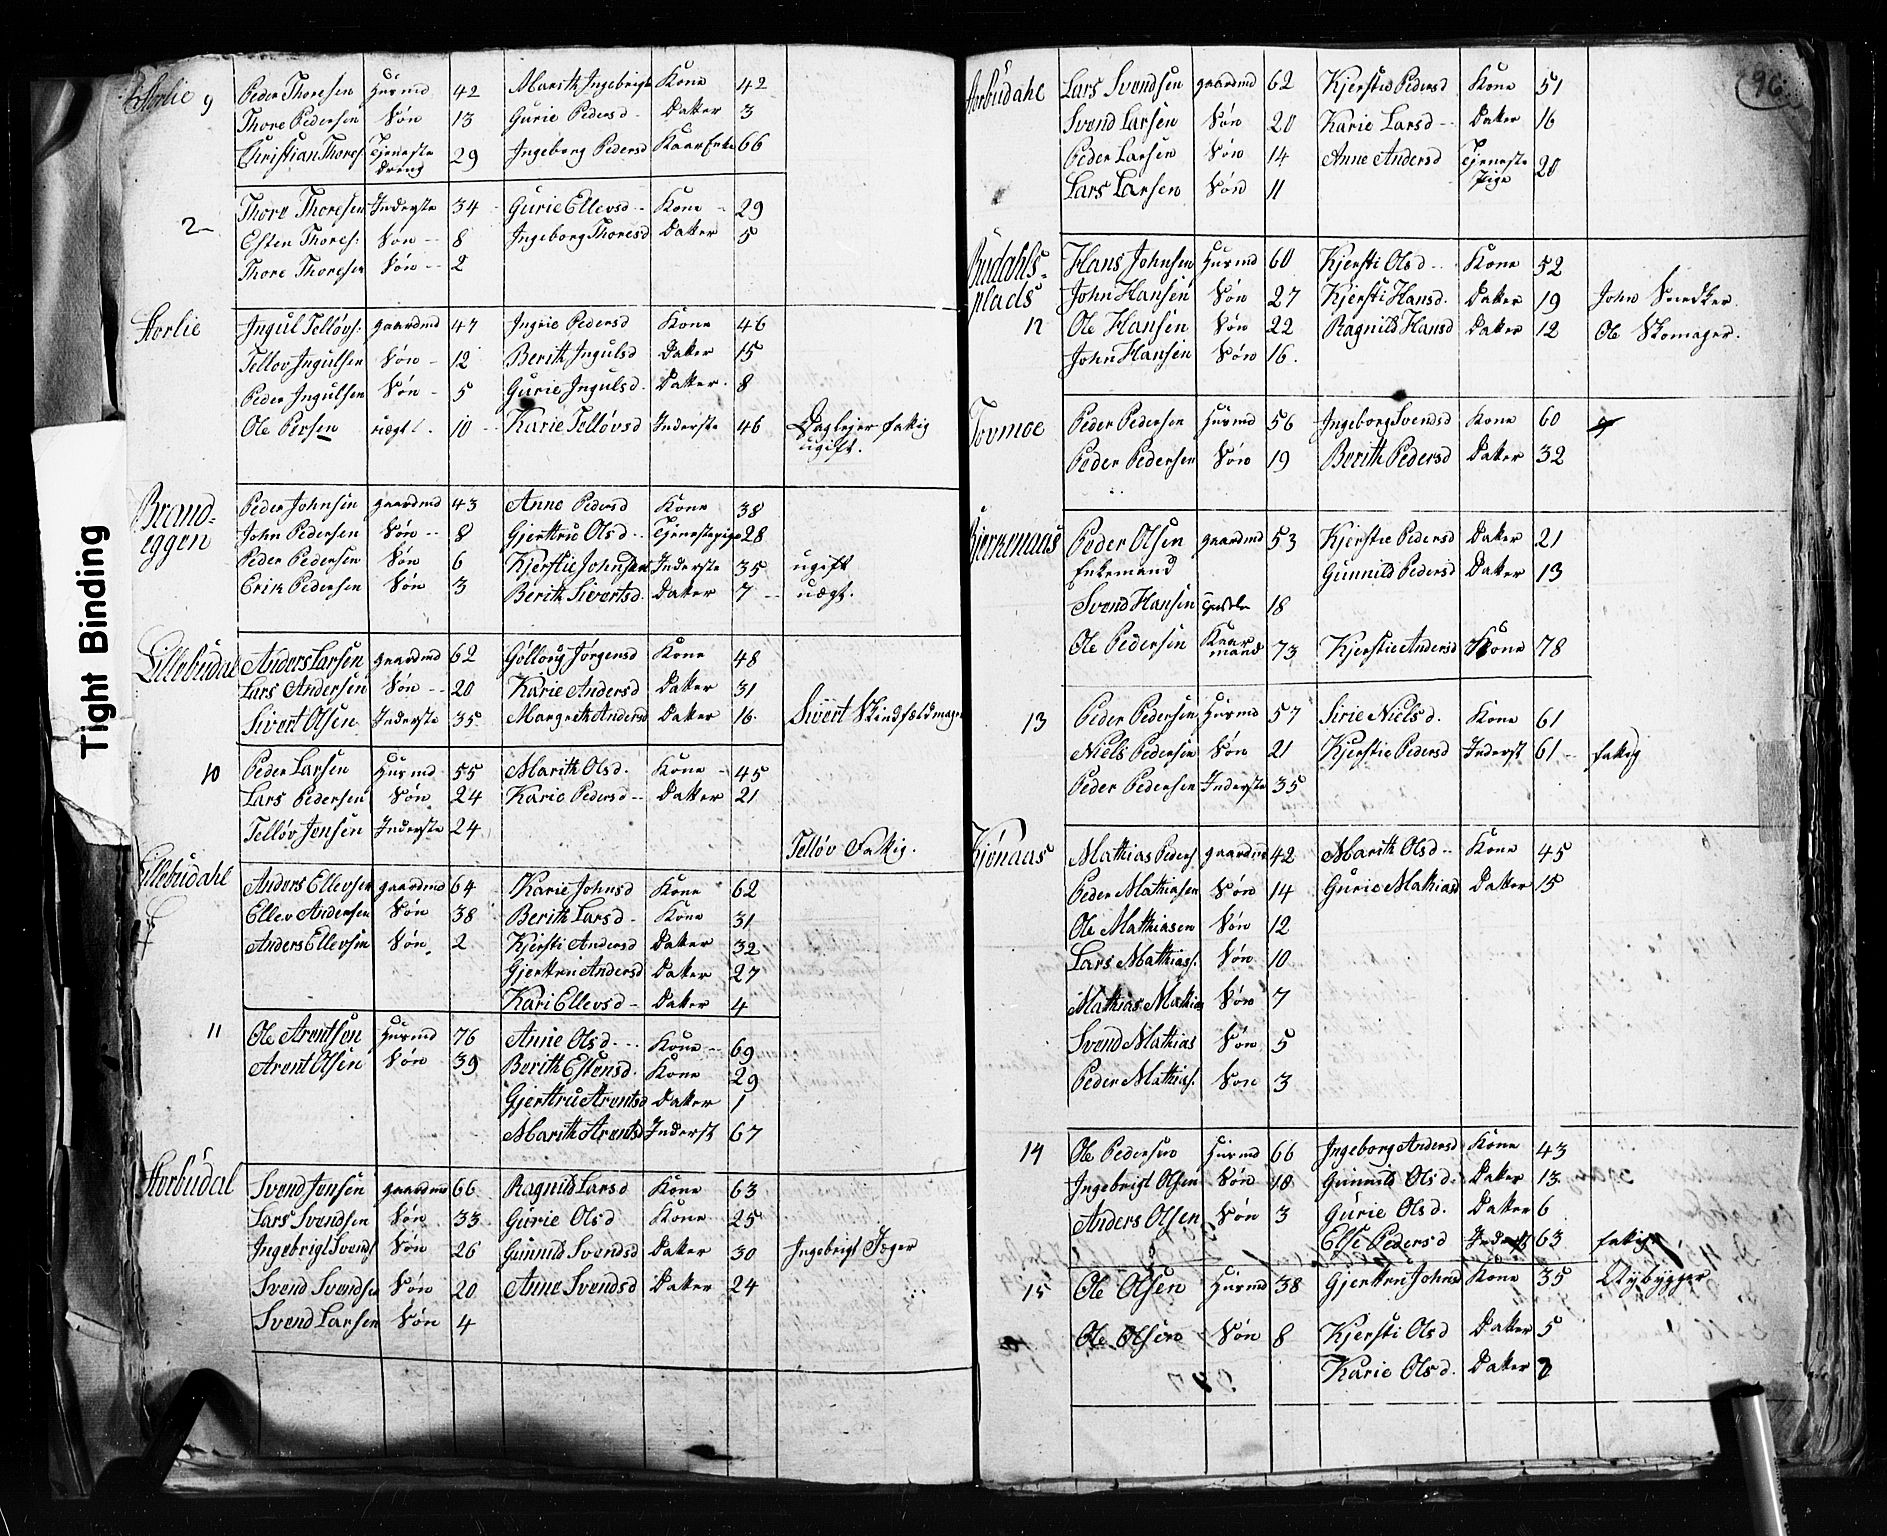 Tight Binding
Storlie 9 Peder Thoresen Husmd 42 Marith Ingebrigts Kone 42
Thore Pedersen Søn 13 Gurie Pedersd Datter 3
Christian Thores. Tjeneste Dreng 29 Ingeborg Pedersd KaarEnke 66
2 Thore Thoresen Inderste 34 Gurie Ellevsd Kone 29
Esten Thores: Søn 8 Ingeborg Thoresd Datter 5
Thore Thoresen Søn 2
Storlie Ingul Telløvs. gaardmd 47 Ingrie Pedersd Kone 46
Telløv Ingulsen Søn 12 Berith Ingulsd Datter 15
Peder Ingulsen Søn 5 Gurie Ingulsd. Datter 8
Ole Persen uægt. 10 Karie Telløvsd Inderste 46 Daglejer fattig
ugift.
Brand- Peder Johnsen gaardmd 43 Anne Pedersd Kone 38
eggen John Pedersen Søn 8 Gjertru Olsd Tjenestepige 28
Peder Pedersen Søn 6 Kjerstie Johnsen Inderste 35 ugift
Erik Pedersen Søn 3 Berith Sivertsd. Datter 7 uægt.
Lillebudal Anders Larsen gaardmd 62 Gølloug Jørgensd Kone 48
Lars Andersen Søn 20 Karie Andersd Datter 31
Sivert Olsen Inderste 35 Margreth Andersd Datter 16. Sivert Skindfældmager
10 Peder Larsen Husmd 55 Marith Olsd. Kone 45
Lars Pedersen Søn 24 Karie Pedersd Datter 21
Telløv Jensen Inderste 24
Telløv Fattig.
Lillebudahl Anders Ellevsen gaardmd 64 Karie Johnsd Kone 62
Ellev Andersen Søn 38 Berith Larsd Kone 31
Anders Ellevsen Søn 2 Kjersti Andersd Datter 32
Gjertru Andersd Datter 27
Kari Ellevsd Datter 4
11 Ole Arentsen Husmd 76 Anne Olsd Kone 69
Arent Olsen Søn 39 Berith Estensd. Kone 29
Gjertru Arentsd Datter 1
Marith Arentsd Inderst 67
Storbudal Svend Jensen gaardmd 66 Ragnild Larsd Kone 63
Lars Svendsen Søn 33 Gurie Olsd Kone 25
Ingebrigt Svends Søn 26 Gunnild Svendsd Datter 30 Ingebrigt Jæger
Svend Svendsen Søn 20 Anne Svendsd Datter 24
Svend Larsen Søn 4
96
Storbudahl Lars Svendsen gaardmd 62 Kjerstie Pedersd Kone 51
Svend Larsen Søn 20 Karie Larsd Datter 16
Peder Larsen Søn 14 Anne Andersd Tjeneste Pige 20
Lars Larsen Søn 11
Budahls- Hans Johnsen Husmd 60 Kjersti Olsd Kone 52
plads John Hansen Søn 27 Kjersti Hansd. Datter 19 John Snedker
12 Ole Hansen Søn 22 Ragnild Hansd Datter 12 Ole Skomager.
John Hansen Søn 16.
Tovmoe Peder Pedersen Husmd 56 Ingeborg Svendsd Kone 60
Peder Pedersen Søn 19 Berith Pedersd Datter 32
Peder Olsen gaardmd 53 Kjerstie Pedersd Datter 21
Enkemand Gunnild Pedersd Datter 13
Svend Hansen 18
Ole Pedersen Kaarmand 73 Kjerstie Andersd Kone 78
13 Peder Pedersen Husmd 57 Sirie Nielsd. Kone 61
Niels Pedersen Søn 21 Kjerstie Pedersd Inderst 61 fattig
Peder Pedersen Inderste 35
Kjønaas Mathias Peders. gaardmd 42 Marith Olsd Kone 45
Peder Mathiasen Søn 14 Gurie Mathiasd Datter 15
Ole Mathiasen Søn 12
Lars Mathias. Søn 10
Mathias Mathias Søn 7
Svend Mathias Søn 5
Peder Mathias. Søn 3
14 Ole Pedersen Husmd 66 Ingeborg Andersd Kone 43
Ingebrigt Olsen Søn 10 Gunnild Olsd. Datter 13
Anders Olsen Søn 3 Gurie Olsd. Datter 6
Else Pedersd Inderst 63 fattig
15 Ole Olsen Husmd 38 Gjertru Johnsd Kone 35 Nybygger
Ole Olsen Søn 8 Kjersti Olsd Datter 5
Karie Olsd. Datter 2